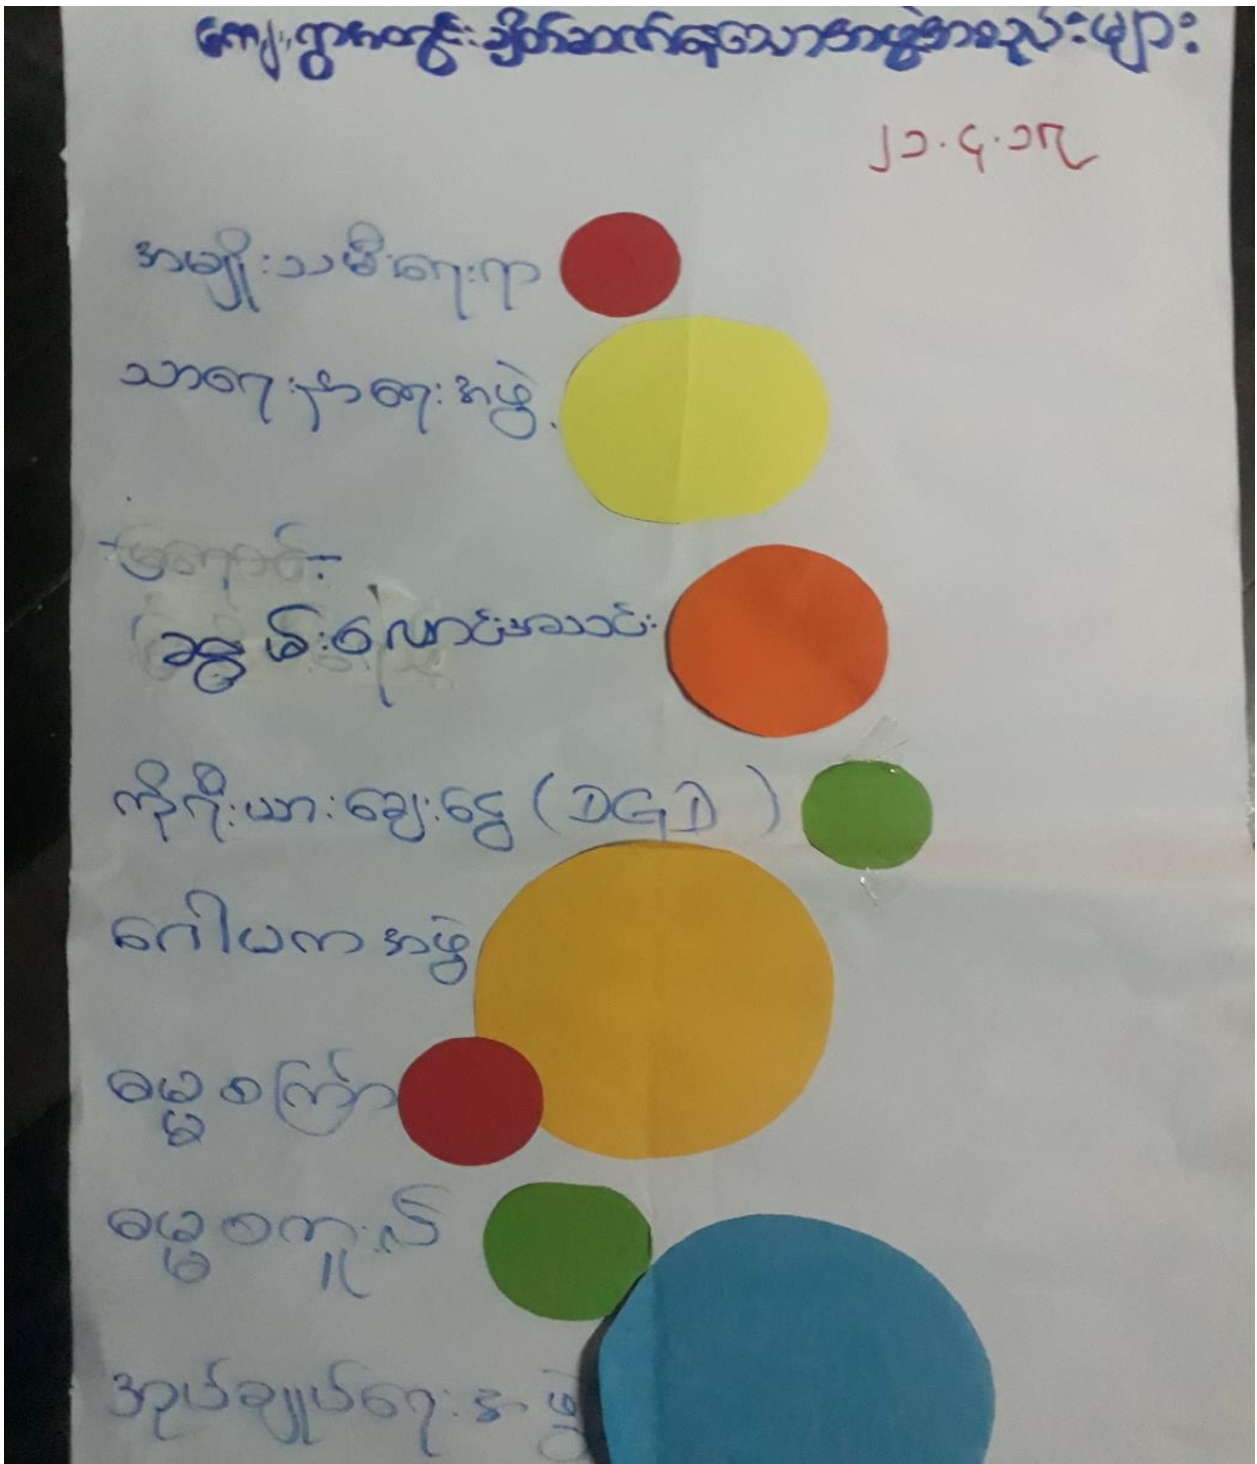 ကျေးရွာအတွင်းချိတ်ဆက်နေသောအဖွဲ့အစည်းများ
၂၁.၄.၁၇
အမျိုးသမီးရေးရာ
သာရေးနာရေးအဖွဲ့
ဆွမ်းလောင်းအသင်း
ကိုရီးယားချေးငွေ (DGD)
ဂေါပကအဖွဲ့
ဓမ္မစကြာ
ဓမ္မစကူးလ်
အုပ်ချုပ်ရေးအဖွဲ့